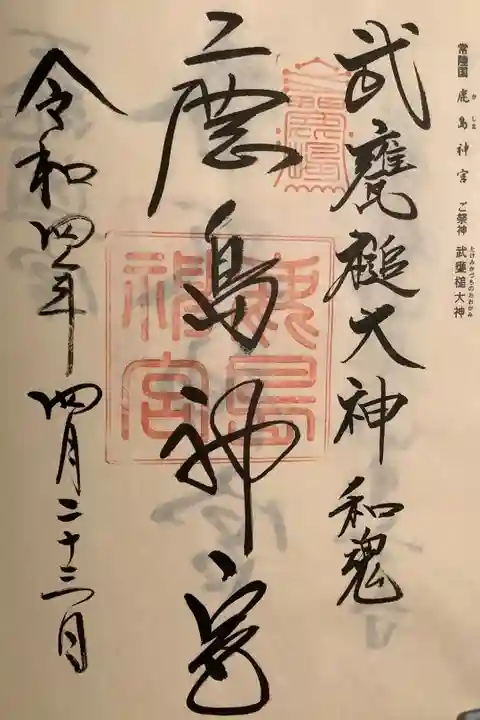 常陸国 鹿島神宮 ご祭神 武甕槌大神
かしま
たけみかづちのおおかみ
武甕槌大神 和魂
鹿島神宮
鹿島神宮
令和四年四月二十三日